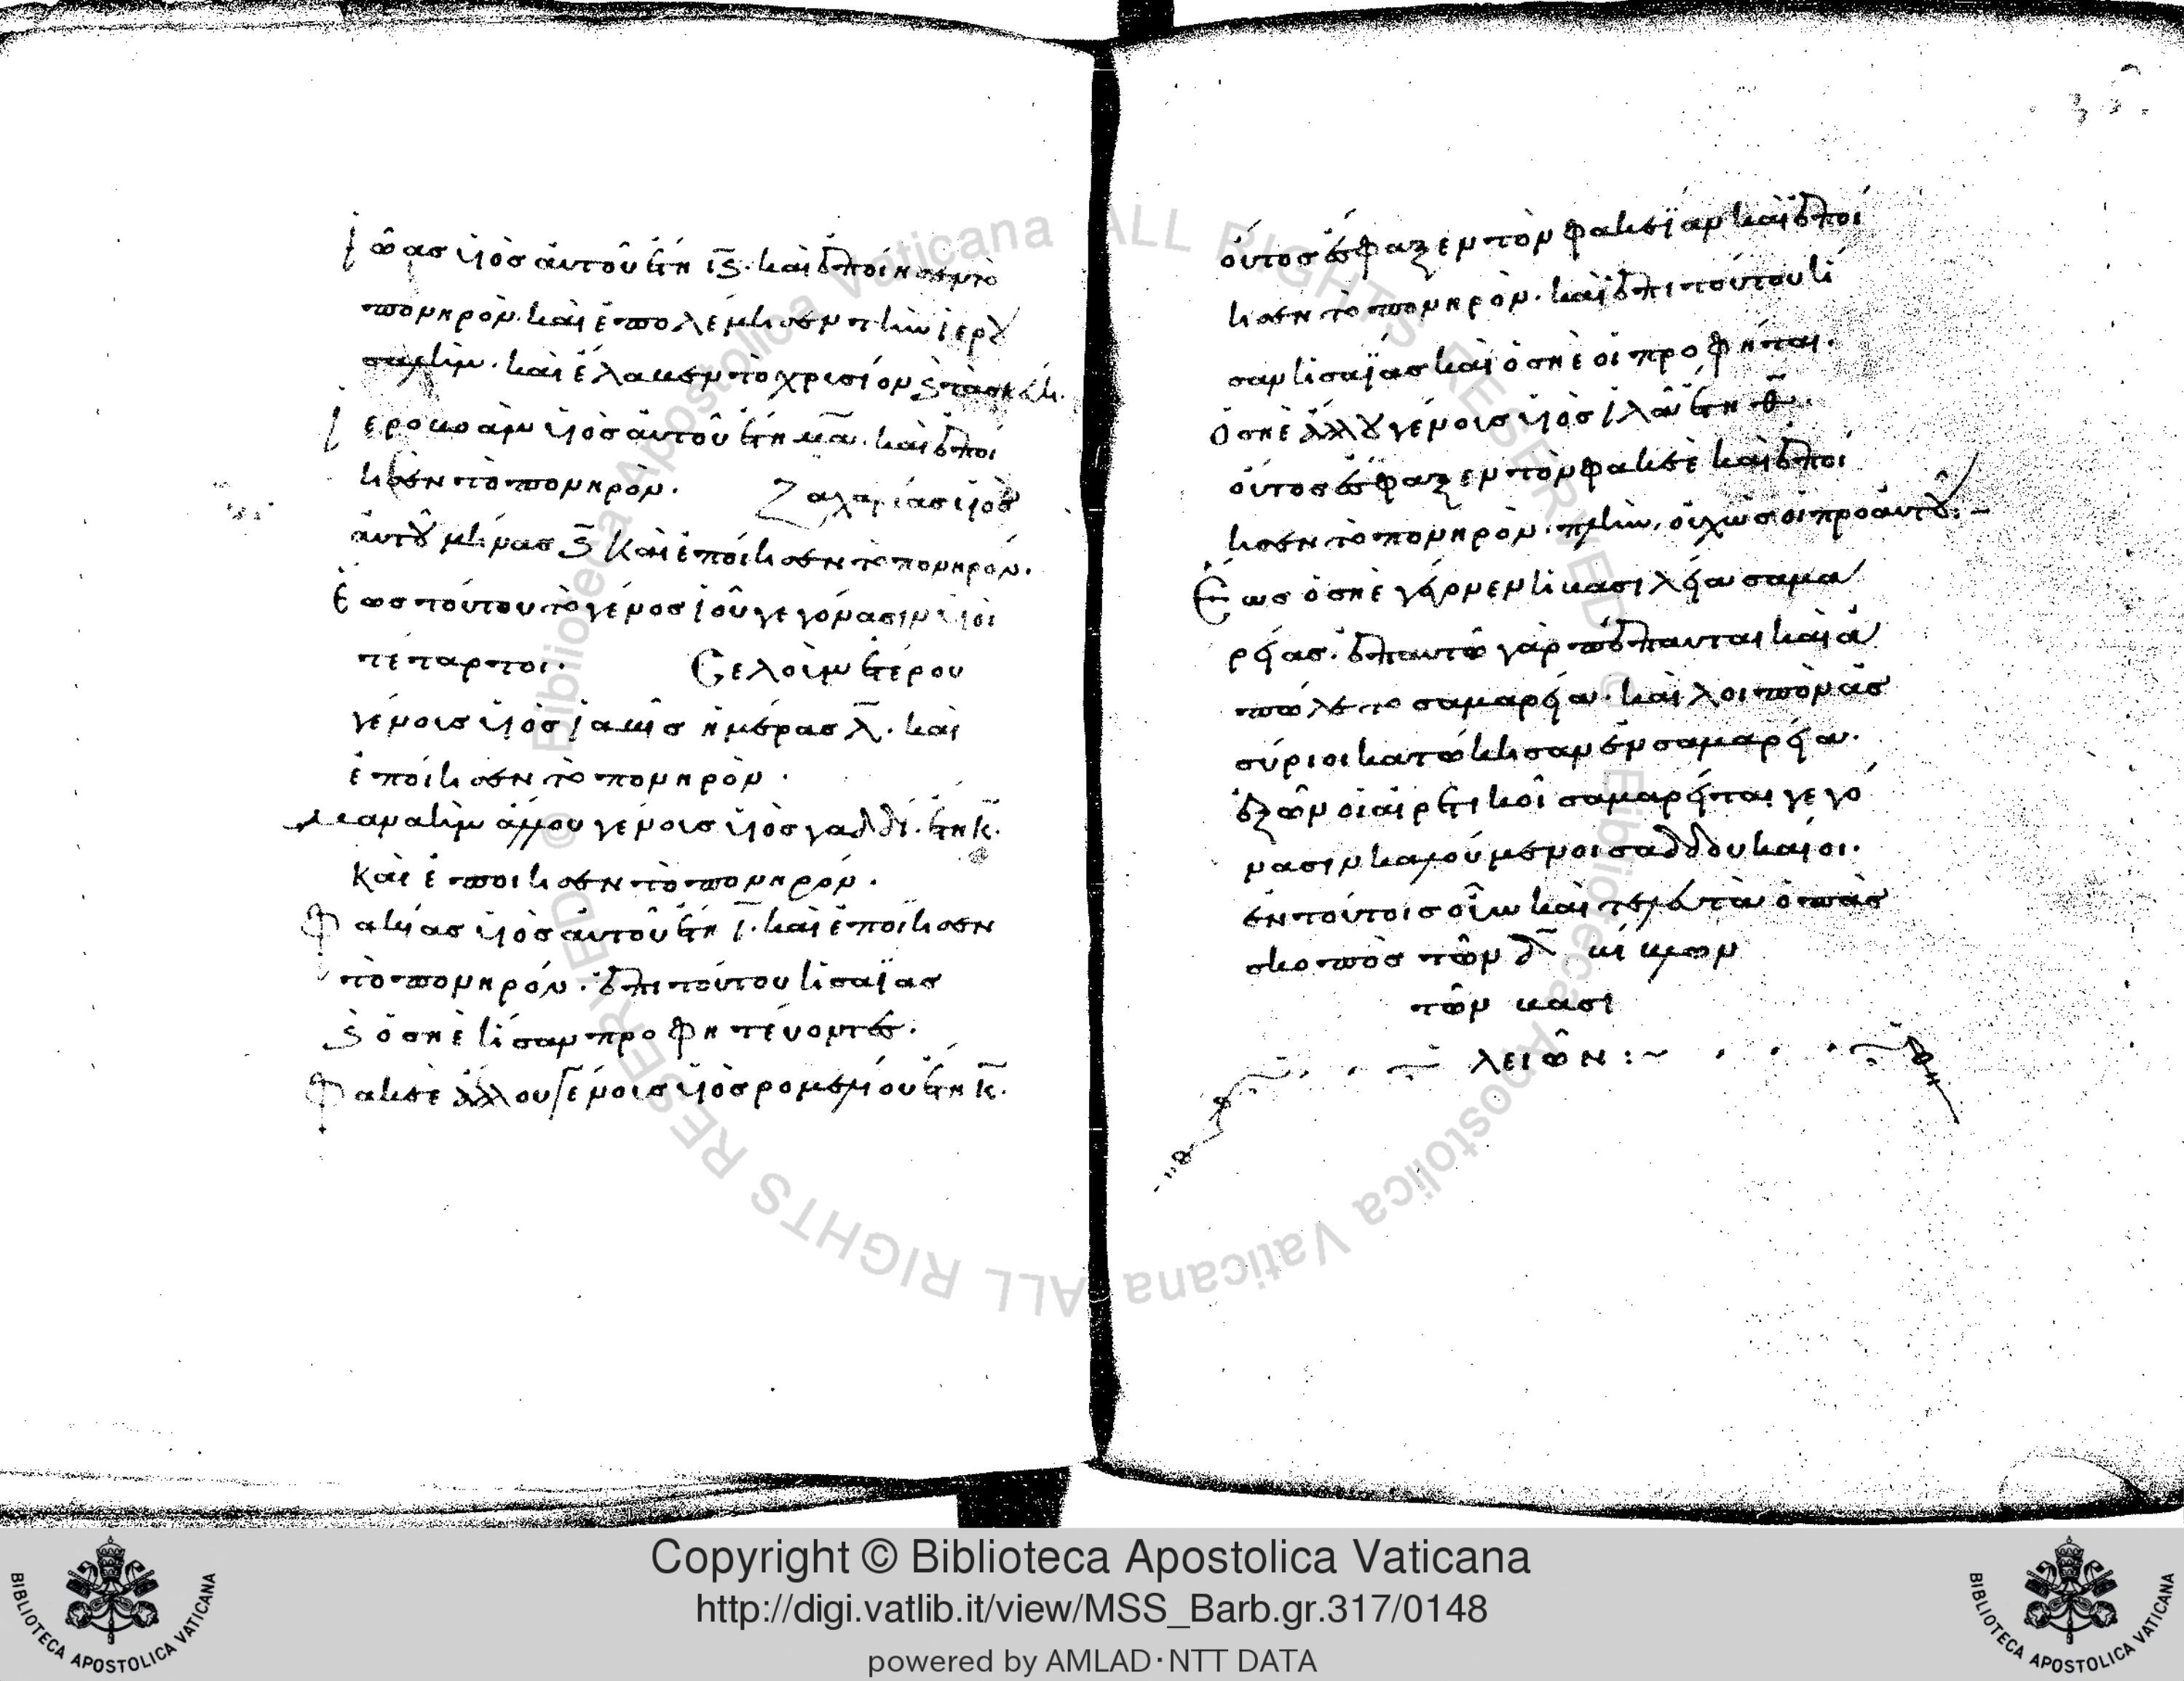 Ἰωᾶς υἱὸς αὐτοῦ ἔτη ις. καὶ ἐποίησεν τὸ
πονηρὸν. καὶ ἐπολέμησεν τὴν ἱερου
σαλὴμ. καὶ ἔλαβεν τὸ χρυσίον
Ἱεροβοὰμ υἱὸς αὐτοῦ ἔτη μα. καὶ ἐποί
ησεν τὸ πονηρὸν. Ζαχαρίας υἱὸς
αὐτοῦ μῆνας ς καὶ ἐποίησεν τὸ πονηρόν.
Ἕως τούτου τὸ γένος ἰοῦ γεγόνασιν υἱοὶ
τέταρτοι. Σελοὶμ ἑτέρου
γένους υἱὸς ἰαβὶς ἡμέρας λ. καὶ
ἐποίησεν τὸ πονηρὸν.
Μαναὴμ ἄλλου γένους υἱὸς γαδδί. ἔτη κ.
καὶ ἐποίησεν τὸ πονηρόν.
Φακίας υἱὸς αὐτοῦ ἔτη ι. καὶ ἐποίησεν
τὸ πονηρόν. ἐπὶ τούτου ἠσαΐας
καὶ ὀσηὲ ἦσαν προφητεύοντες.
Φακεὲ ἄλλου γένους υἱὸς ρομελίου ἔτη κ.
οὗτος ἔσφαξεν τὸν φακεΐαν καὶ ἐποί
ησεν τὸ πονηρόν. καὶ ἐπὶ τούτου ἦ
σαν ἠσαΐας καὶ ὀσηὲ οἱ προφῆται.
Ὀσηὲ ἄλλου γένους υἱὸς ἰλᾶ ἔτη θ.
οὗτος ἔσφαξεν τὸν φακεὲ καὶ ἐποί
ησεν τὸ πονηρὸν. πλὴν, οὐχ ὡς οἱ πρὸ αὐτοῦ:-
Ἕως ὀσηὲ γέγονεν ἡ βασιλεία σαμα
ρείας. ἐπ αὐτῶ γὰρ πέπαυται καὶ ἀ
πώλετο σαμαρεία. καὶ λοιπὸν ἀσ
σύριοι κατώκησαν ἐν σαμαρεία.
ἐξ ὧν οἱ αἱρετικοὶ σαμαρεῖται γεγό
νασιν καλούμενοι σαδδουκαίοι.
ἐν τούτοις οὖν καὶ τελευτᾶ ὁ πᾶς
σκοπὸς τῶν δ βίβλων
τῶν βασι
λειῶν:~
Copyright © Biblioteca Apostolica Vaticana
http://digi.vatlib.it/view/MSS_Barb.gr.317/0148
powered by AMLAD·NTT DATA
BIBLIOTECA APOSTOLICA VATICANA
BIBLIOTECA APOSTOLICA VATICANA